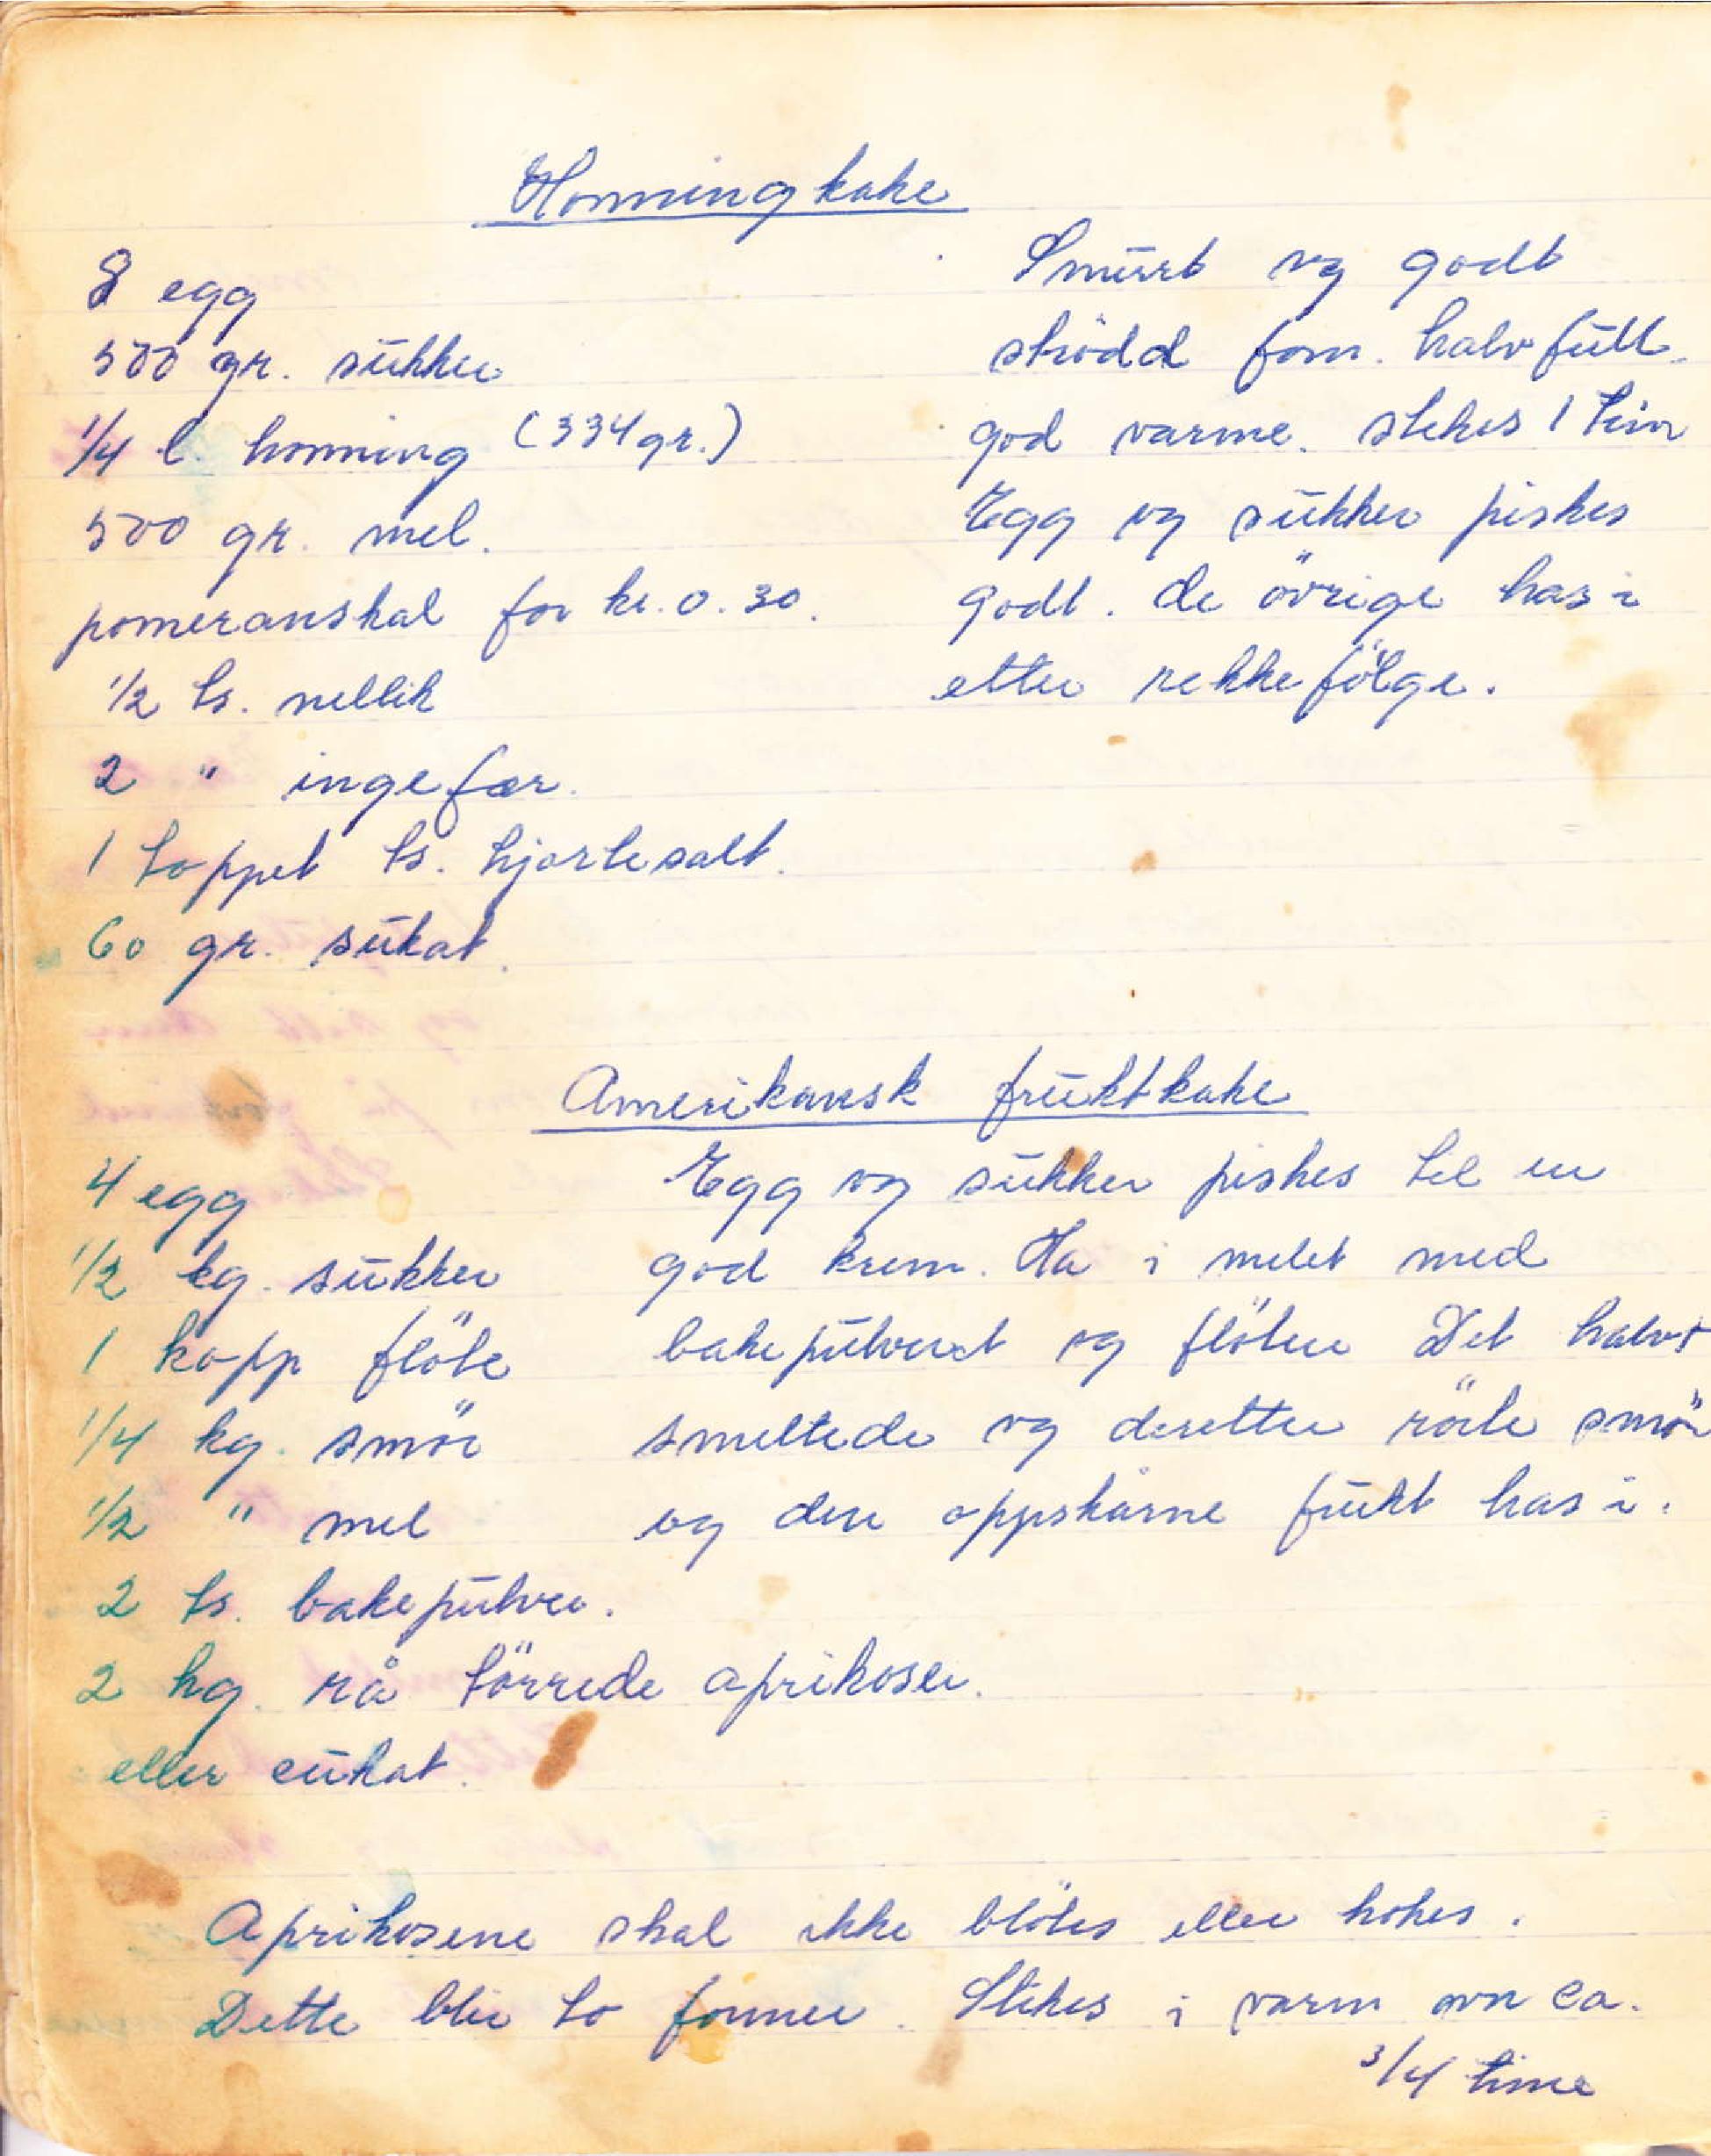 Honningkake
8 egg
500 gr. sukker
1/4 l. honning (334 gr.)
500 gr. mel.
pomeranskal for kr. 0.30.
1/2 ts. nellik
2 " ingefær.
1 toppet ts. hjortesalt.
60 gr. sukat.
Smurt og godt
strødd form. halvfull.
god varme. stekes 1 tim
Egg og sukker piskes
godt. de övrige has i
etter rekkefölge.
Amerikansk fruktkake
4 egg
1/2 kg. sukker
1 kopp flöte
1/4 kg. smör
1/2 " mel
2 ts. bakepulver.
2 hg. rå törrede aprikoser.
eller cukat.
Egg og sukker piskes til en
god krem. Ha i melet med
bakepulveret og flöten Det halvt
smeltede og deretter rörte smör
og den oppskårne frukt has i.
Aprikosene skal ikke blötes eller kokes.
Dette blir to former. Stekes i varm ovn ca.
3/4 time